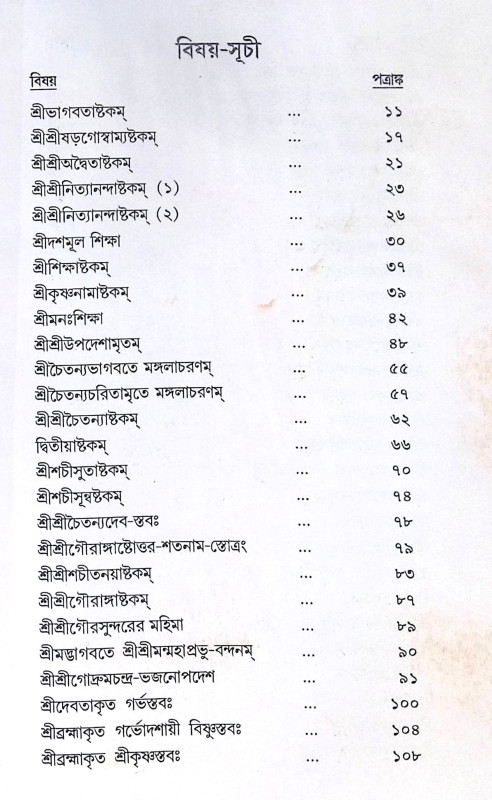 বিষয়-সূচী
বিষয় পত্রাঙ্ক
শ্রীভাগবতাষ্টকম্ ... ১১
শ্রীশ্রীষড়গোস্বাম্যষ্টকম্ ... ১৭
শ্রীশ্রীঅদ্বৈতাষ্টকম্ ... ২১
শ্রীশ্রীনিত্যানন্দাষ্টকম্ (১) ... ২৩
শ্রীশ্রীনিত্যানন্দাষ্টকম্ (২) ... ২৬
শ্রীদশমূল শিক্ষা ... ৩০
শ্রীশিক্ষাষ্টকম্ ... ৩৭
শ্রীকৃষ্ণনামাষ্টকম্ ... ৩৯
শ্রীমনঃশিক্ষা ... ৪২
শ্রীশ্রীউপদেশামৃতম্ ... ৪৮
শ্রীচৈতন্যভাগবতে মঙ্গলাচরণম্ ... ৫৫
শ্রীচৈতন্যচরিতামৃতে মঙ্গলাচরণম্ ... ৫৭
শ্রীশ্রীচৈতন্যাষ্টকম্ ... ৬২
দ্বিতীয়াষ্টকম্ ... ৬৬
শ্রীশচীসুতাষ্টকম্ ... ৭০
শ্রীশচীসূন্বষ্টকম্ ... ৭৪
শ্রীশ্রীচৈতন্যদেব-স্তবঃ ... ৭৮
শ্রীশ্রীগৌরাঙ্গাষ্টোত্তর-শতনাম-স্তোত্রং ... ৭৯
শ্রীশ্রীশচীতনয়াষ্টকম্ ... ৮৩
শ্রীশ্রীগৌরাঙ্গাষ্টকম্ ... ৮৭
শ্রীশ্রীগৌরসুন্দরের মহিমা ... ৮৯
শ্রীমদ্ভাগবতে শ্রীশ্রীমন্মহাপ্রভু-বন্দনম্ ... ৯০
শ্রীশ্রীগোদ্রুমচন্দ্র-ভজনোপদেশ ... ৯১
শ্রীদেবতাকৃত গর্ভস্তবঃ ... ১০০
শ্রীব্রহ্মাকৃত গর্ভোদশায়ী বিষ্ণুস্তবঃ ... ১০৪
শ্রীব্রহ্মাকৃত শ্রীকৃষ্ণস্তবঃ ... ১০৮